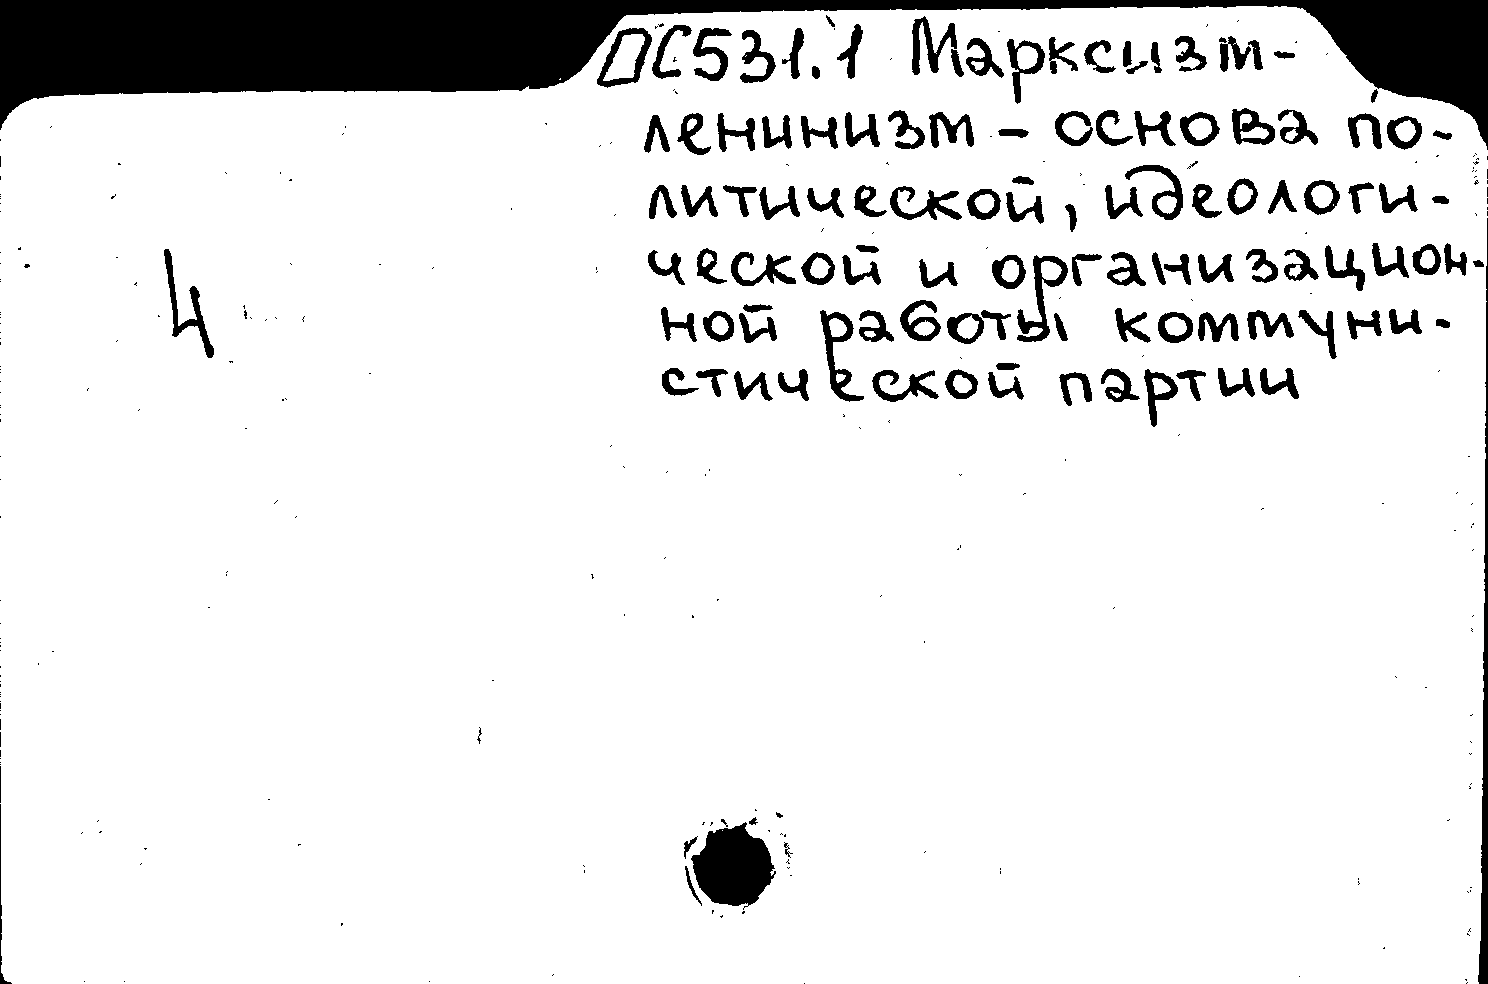 □С531.1 Марксизм-
ленинизм – основа по-
литической, идеологи-
ческой и организацион-
ной работы коммуни-
стической партии
4